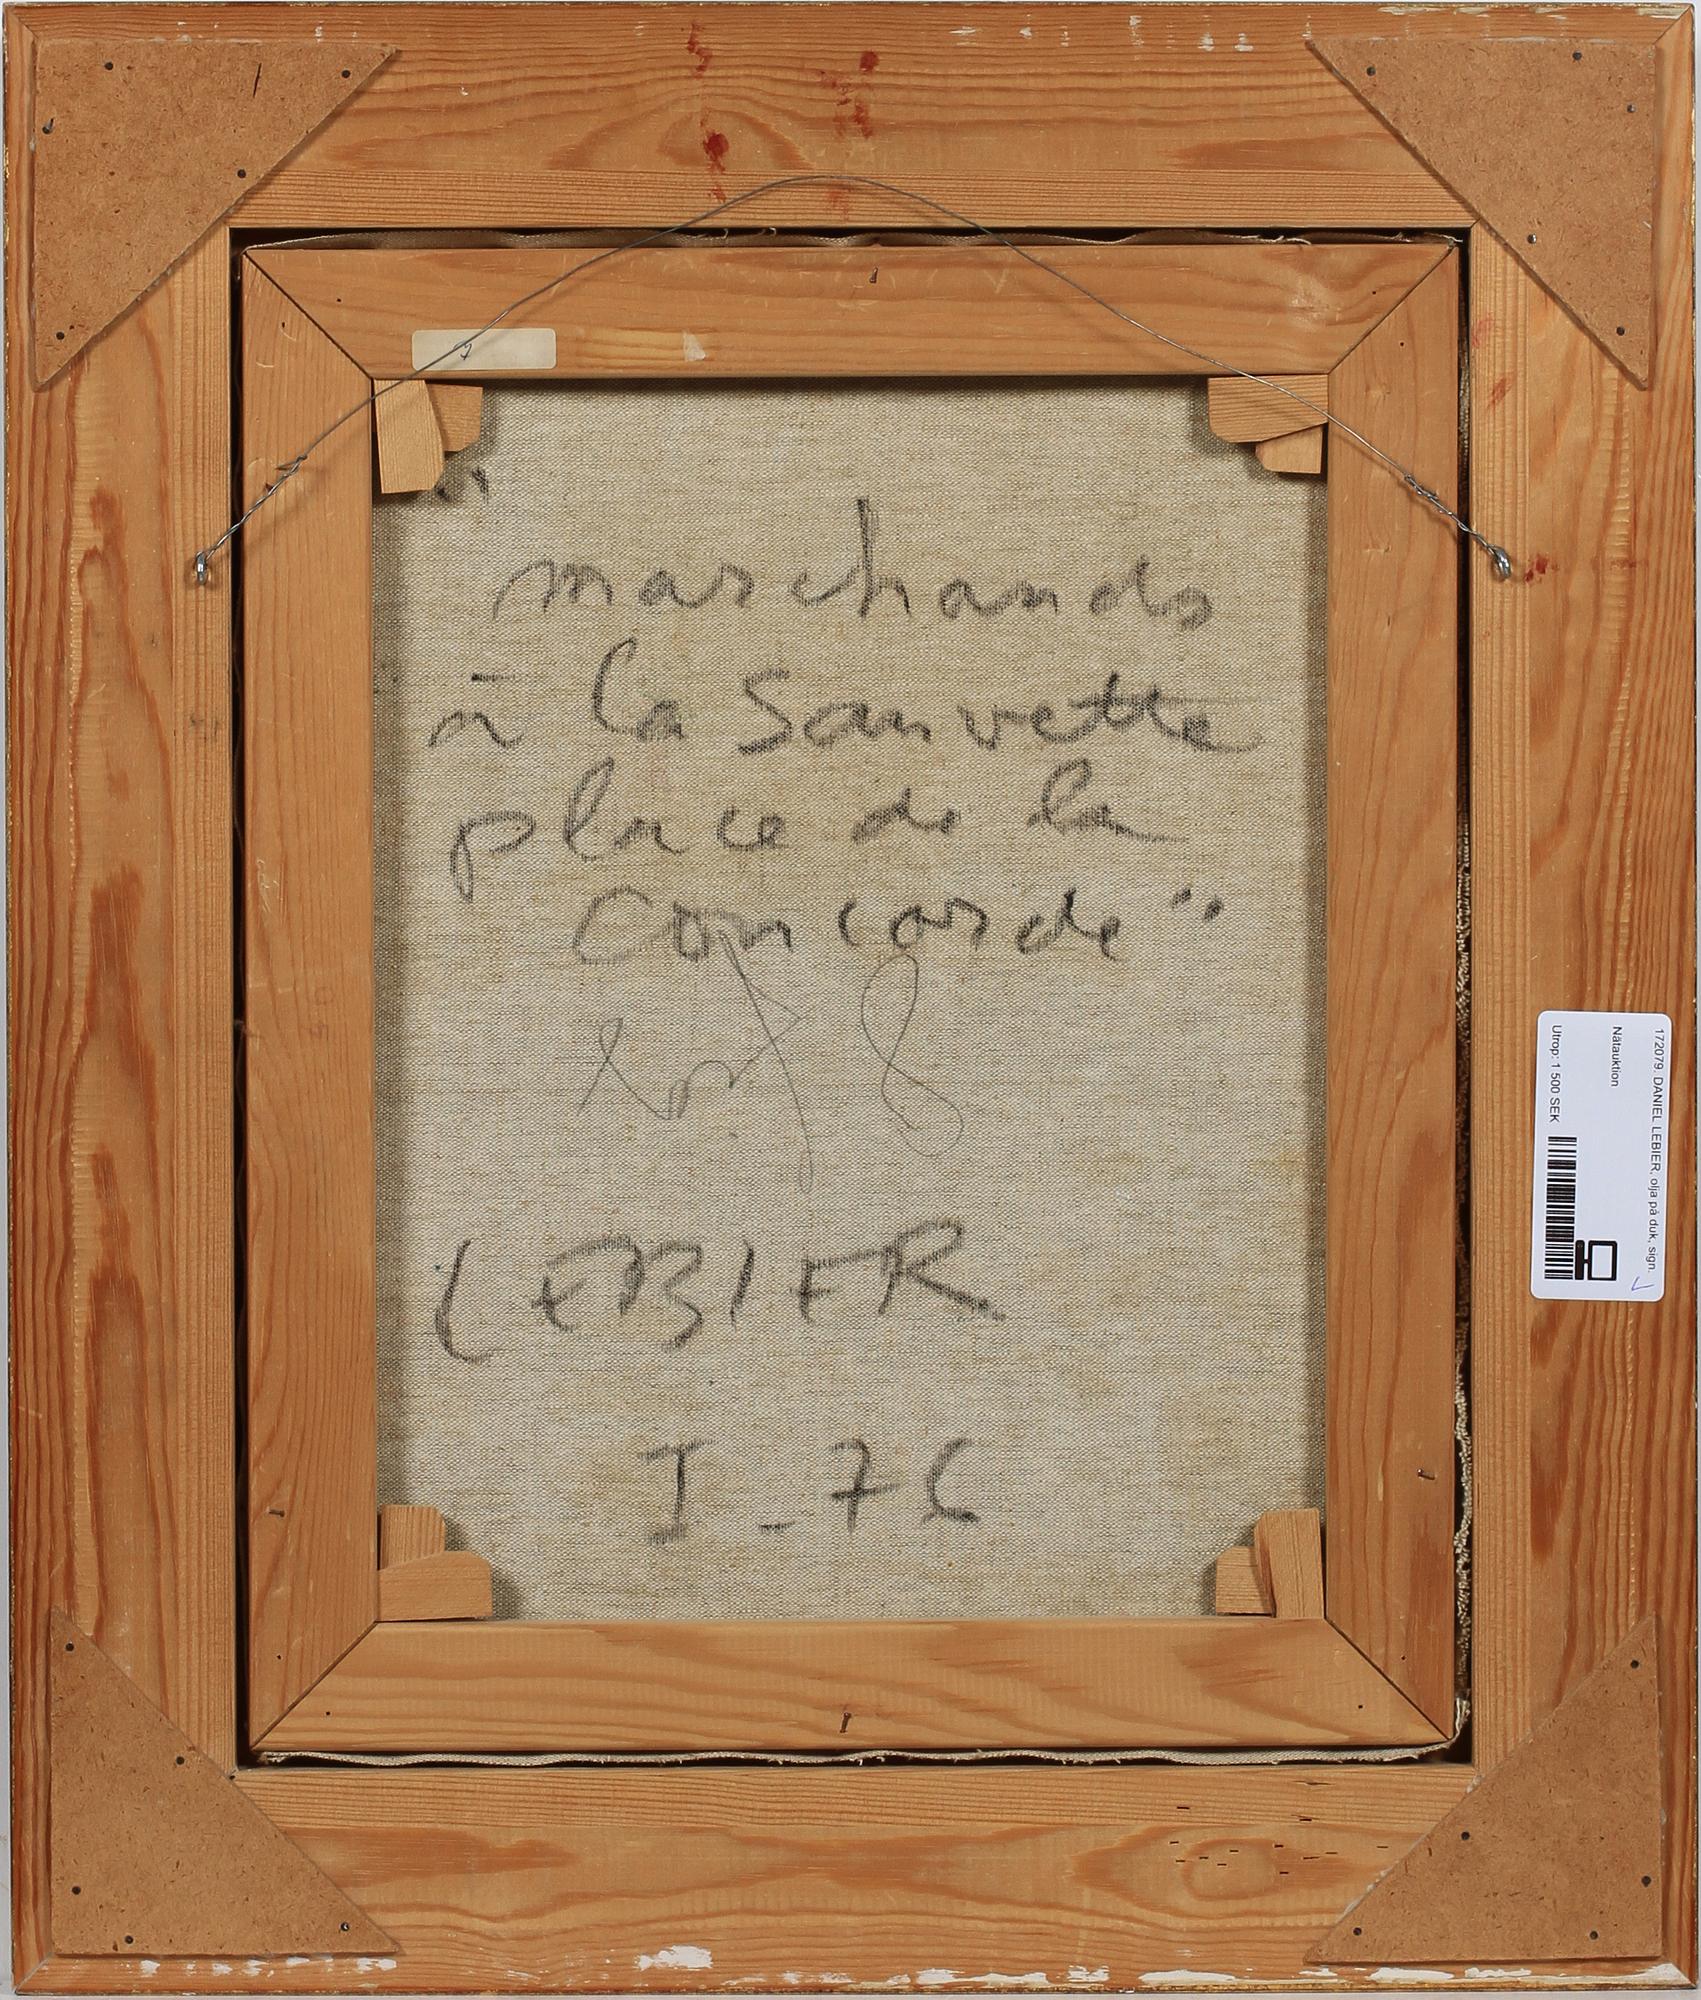 "
marchands
à la Sauvette
place de la
Concorde"
LEBIER
I_76
172079. DANIEL LEBIER, olja på duk, sign.
Nätauktion
Utrop: 1 500 SEK